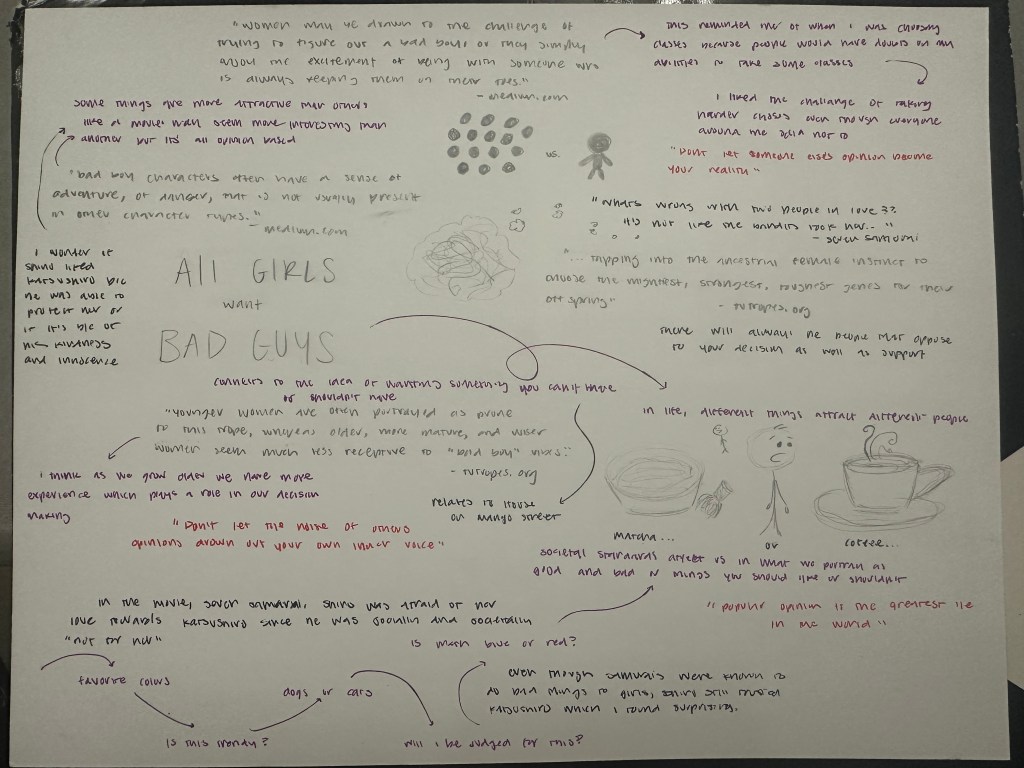 "Women may be drawn to the challenge of
trying to figure out a bad boys or they simply
enjoy the excitement of being with someone who
is always keeping them on their toes."
- medium.com
this reminded me of when I was choosing
classes because people would have doubts on my
abilities to take some classes
I liked the challenge of taking
harder classes even though everyone
around me said not to
"Don't let someone elses opinion become
your reality"
some things are more attractive than others
like a movie can seem more interesting than
another but it's all opinion based
vs.
"bad boy characters often have a sense of
adventure, of danger, that is not usually present
in other character types."
- medium.com
"whats wrong with two people in love??
it's not like the bandits took her..."
- seven samurai
"... tapping into the ancestral female instinct to
choose the mightiest, strongest, toughest genes for their
offspring"
- tvtropes.org
there will always be people that oppose
to your decision as well as support
I wonder if
shino liked
katsushiro b/c
he was able to
protect her or
if it's b/c of
his kindness
and innocence
All GIRLS
want
BAD GUYS
connects to the idea of wanting something you can't have
or shouldn't have
"younger women are often portrayed as prone
to this trope, whereas older, more mature, and wiser
women seem much less receptive to "bad boy" vibes."
- tvtropes.org
I think as we grow older we have more
experience which plays a role in our decision
making
relates to House
on mango street
"Don't let the noise of others
opinions drown out your own inner voice"
in life, different things attract different people
matcha...
or
coffee...
societal standards affect us in what we portray as
good and bad or things you should like or shouldn't
"popular opinion is the greatest lie
in the world"
in the movie, seven samurai, shino was afraid of her
love towards katsushiro since he was socially
"not for her"
Is math blue or red?
even though samurais were known to
do bad things to girls, shino still trusted
katsushiro which I found surprising.
favorite colors
Is this trendy?
dogs or cats
will I be judged for this?